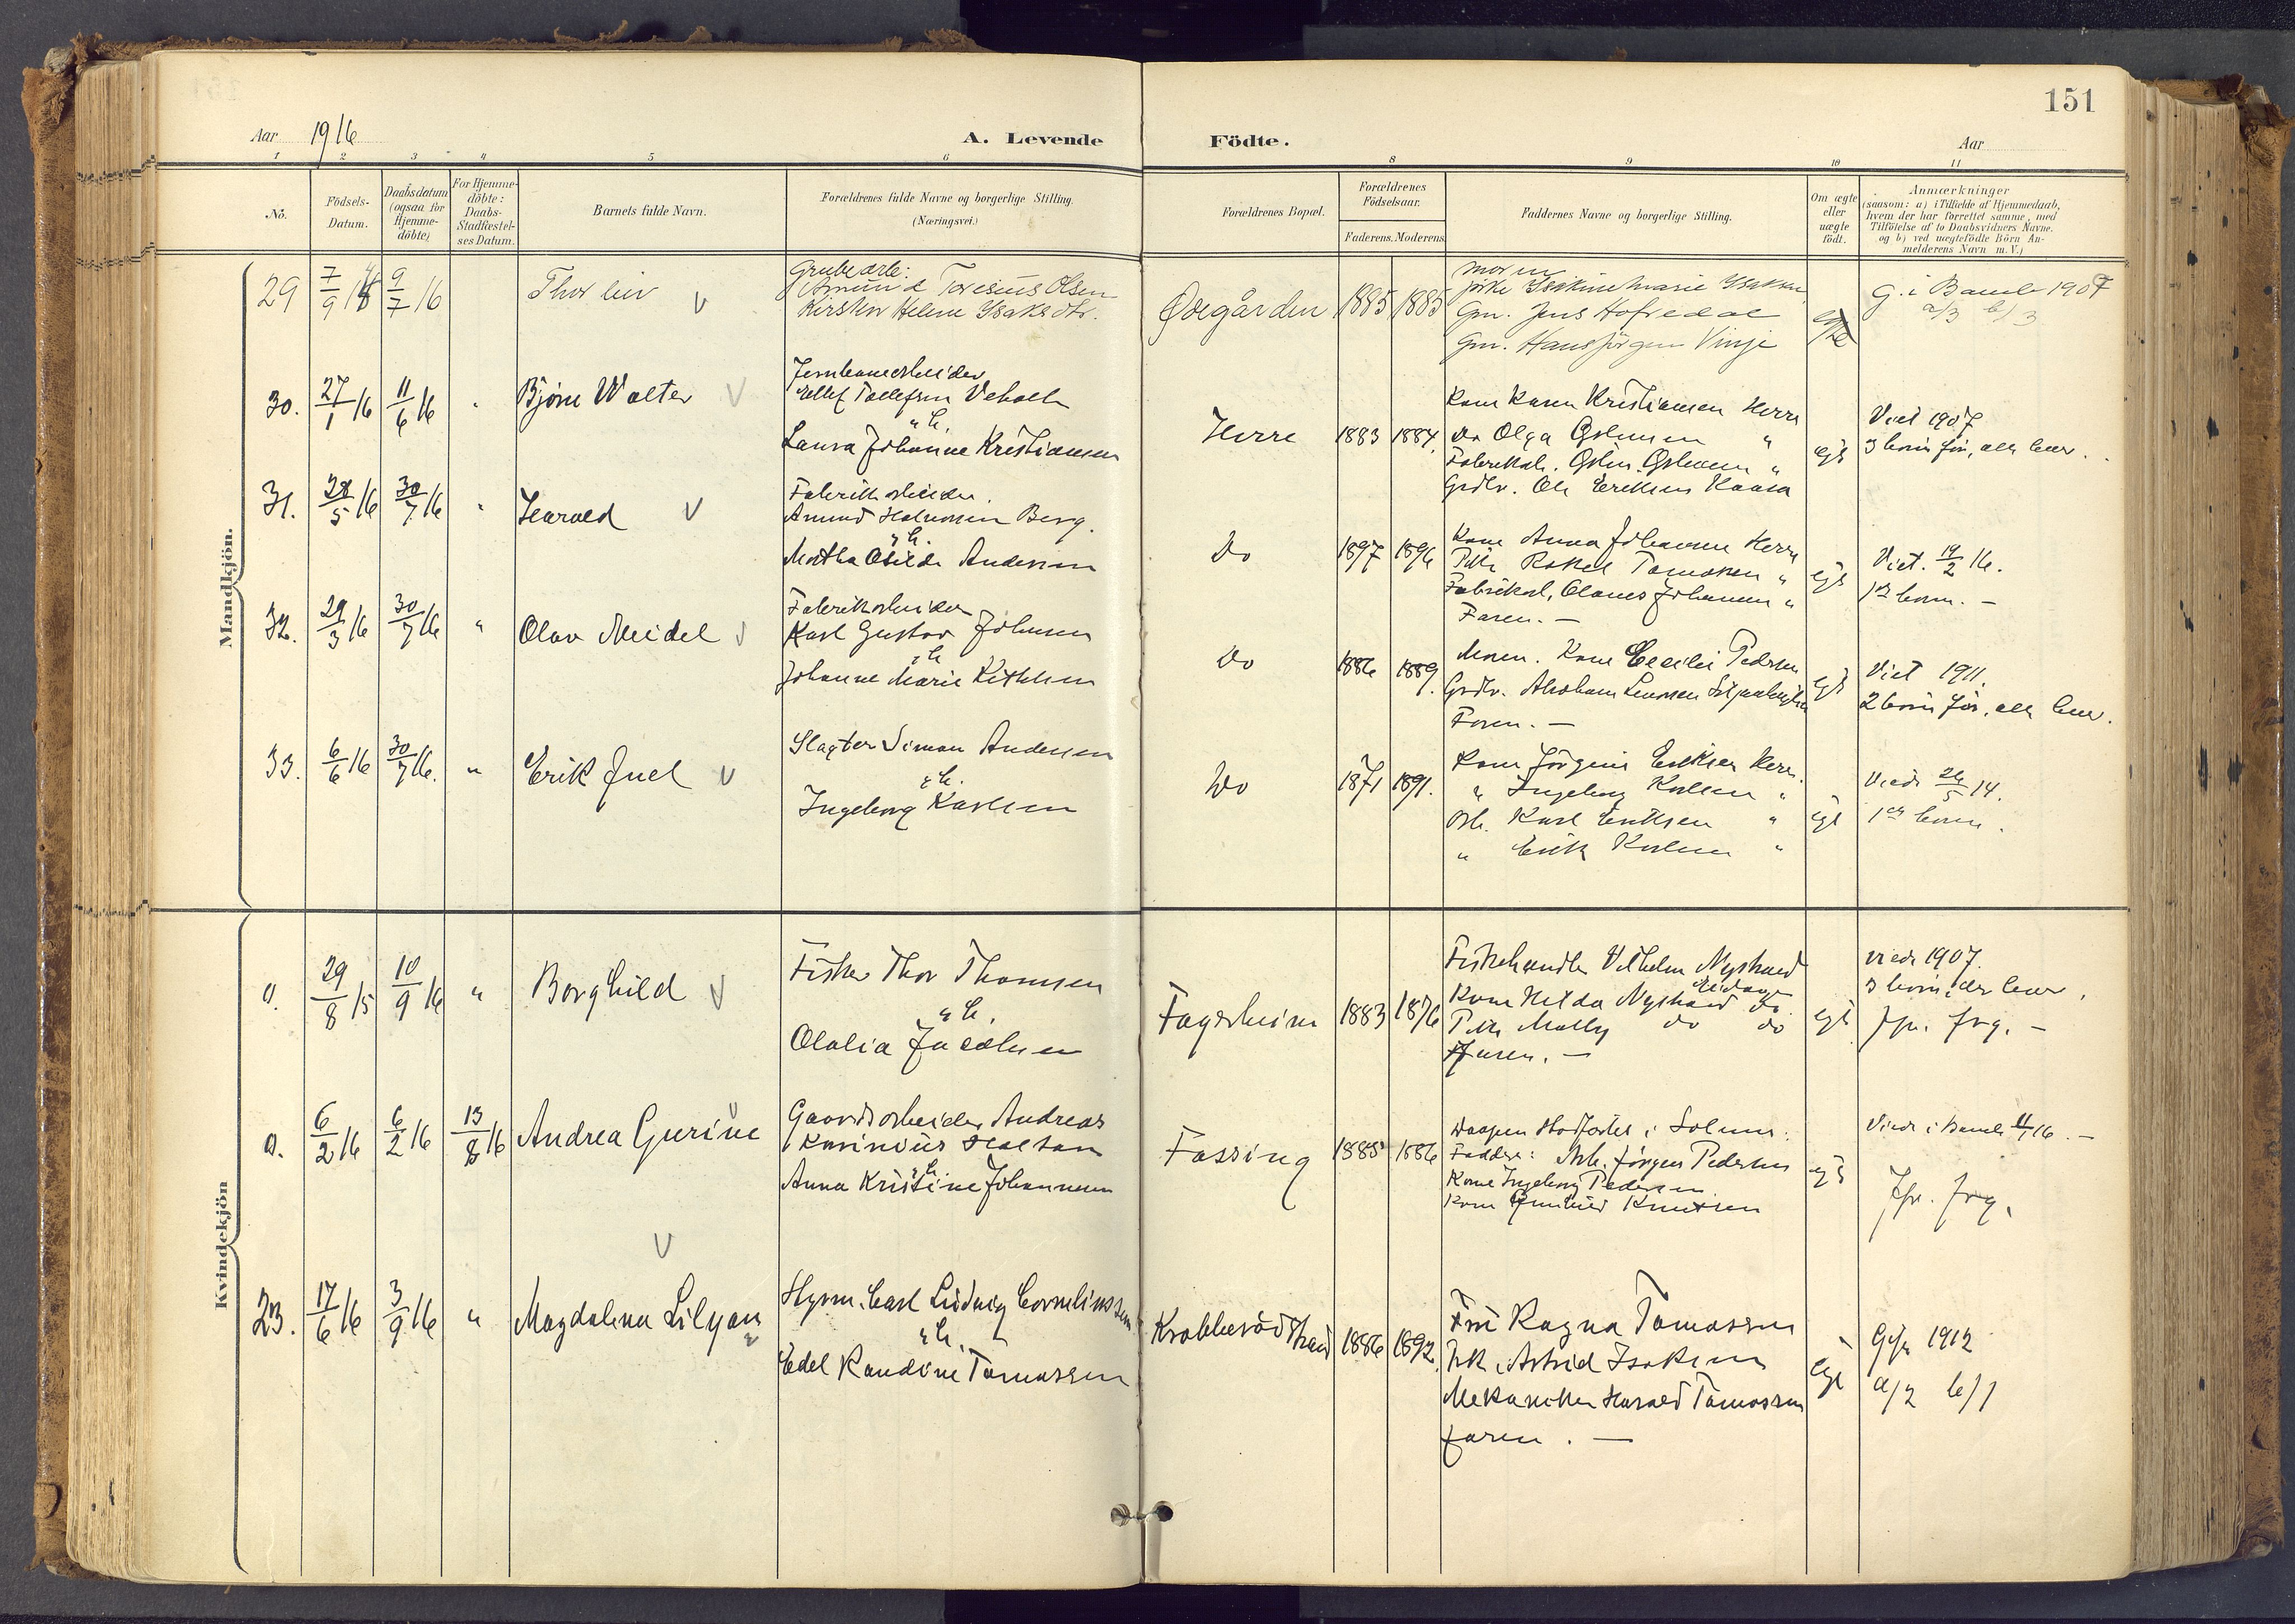 151
Aar 1916
A. Levende Födte.
Aar
1 2 3 4 5 6 8 9 10 11
No.
Födsels-Datum.
Daabsdatum (ogsaa for Hjemme-döbte)
For Hjemme-döbte: Daabs-Stadfæstel-ses Datum.
Barnets fulde Navn.
Forældrenes fulde Navne og borgerlige Stilling.
(Næringsvei.)
Forældrenes Bopæl.
Forældrenes Födselsaar.
Faderens. Moderens.
Faddernes Navne og borgerlige Stilling.
Om ægte eller uægte født.
Anmærkninger
(saasom: a) i Tilfælde af Hjemmedaab,
hvem der har forrettet samme, med
Tilföielse af to Daabsvidners Navne.
og b) ved uægtefödte Börn An-
melderens Navn m. V.)
Mandkjön.
29 9/7 16 Thorleiv
Grubearb:
Amund Toresius Olsen
Kirsten Helene Ysaksdtr.
Ødegården 1885 1885
Gm. Jens Hofredal
Gm. Hans Jörgen Vinje
G. i Bamle 1907
a/3 b/3
30. 27/1 16 11/6 16 Bjöne Walter
Jernbanearbeider
Ellef Tollefsen
Laura Johanne Kristiansen
Herre 1883 1884.
Kone Karen Kristiansen Herre
Do Olga
Grdbr. Ole Eriksen
egte
Viet 1907
3 born för, alle lever.
31. 28/5 16 30/7 16 " Harald
Fabrikarbeider.
Amund Halvorsen Berg.
Martha Otilde Andersen
Do 1897 1896
Kone Anna Johansen Herre
Pike Rakel Tomassen "
Fabrikarb. Olaves Johansen "
Faren. —
egte
Viet. 19/2 16.
1ste born. —
32. 29/3 16 30/7 16 " Olav Meidel
Fabrikarbeider
Karl Gustav Johnsen
Johanne Marie
Do 1886 1889.
Moren. Kone Cecilie Pedersen
Grdbr. Abraham
Faren. —
egte
Viet 1911.
2 born för, alle lever.
33. 6/6 16 30/7 16. " Erik Juel
Slagter Simon Andersen
Ingeborg Karlsen
Do 1871 1891.
Kone Jörgine Eriksen Herre.
" Ingeborg Karlsen "
Arb. Karl Eriksen "
" Erik Karlsen "
egte
Viede 26/5 14.
1ste born.
Kvindekjön
0. 29/8 15 10/9 16 " Borghild
Fisker Thor Thomsen
Olalia Jacobsen
Fagerheim 1883 1876
Fiskehandler Vilhelm Nystrand
Eidanger
Kone Hilda Nystrand do.
Pike Molly do do
Faren. —
egte
viede 1907.
3 born, alle lever.
Jfr. frg. —
0. 6/2 16 6/2 16 13/8 16 Andrea Gurine
Gaardsarbeider Andreas
Karinius
Anna Kristine Johannesen
Fossing 1885 1886
Daapen stadfæstet i Solum.
Faddere: Arb. Jörgen Pedersen
Kone Ingeborg Pedersen
Kone Gunhild Knutsen
egte
Viede i Bamle 16. —
Jfr. frg.
23. 17/6 16 3/9 16 " Magdalena Lilyan
Styrm. Carl Ludvig Cornelinssen
Edel Randine Tomassen
Krabberödstrand 1886 1892.
Fru Ragna Tomassen
Frk. Astrid Isaksen
Mekaniker Harald Tomassen
faren. —
egte
Gift 1912
a/2 b/1